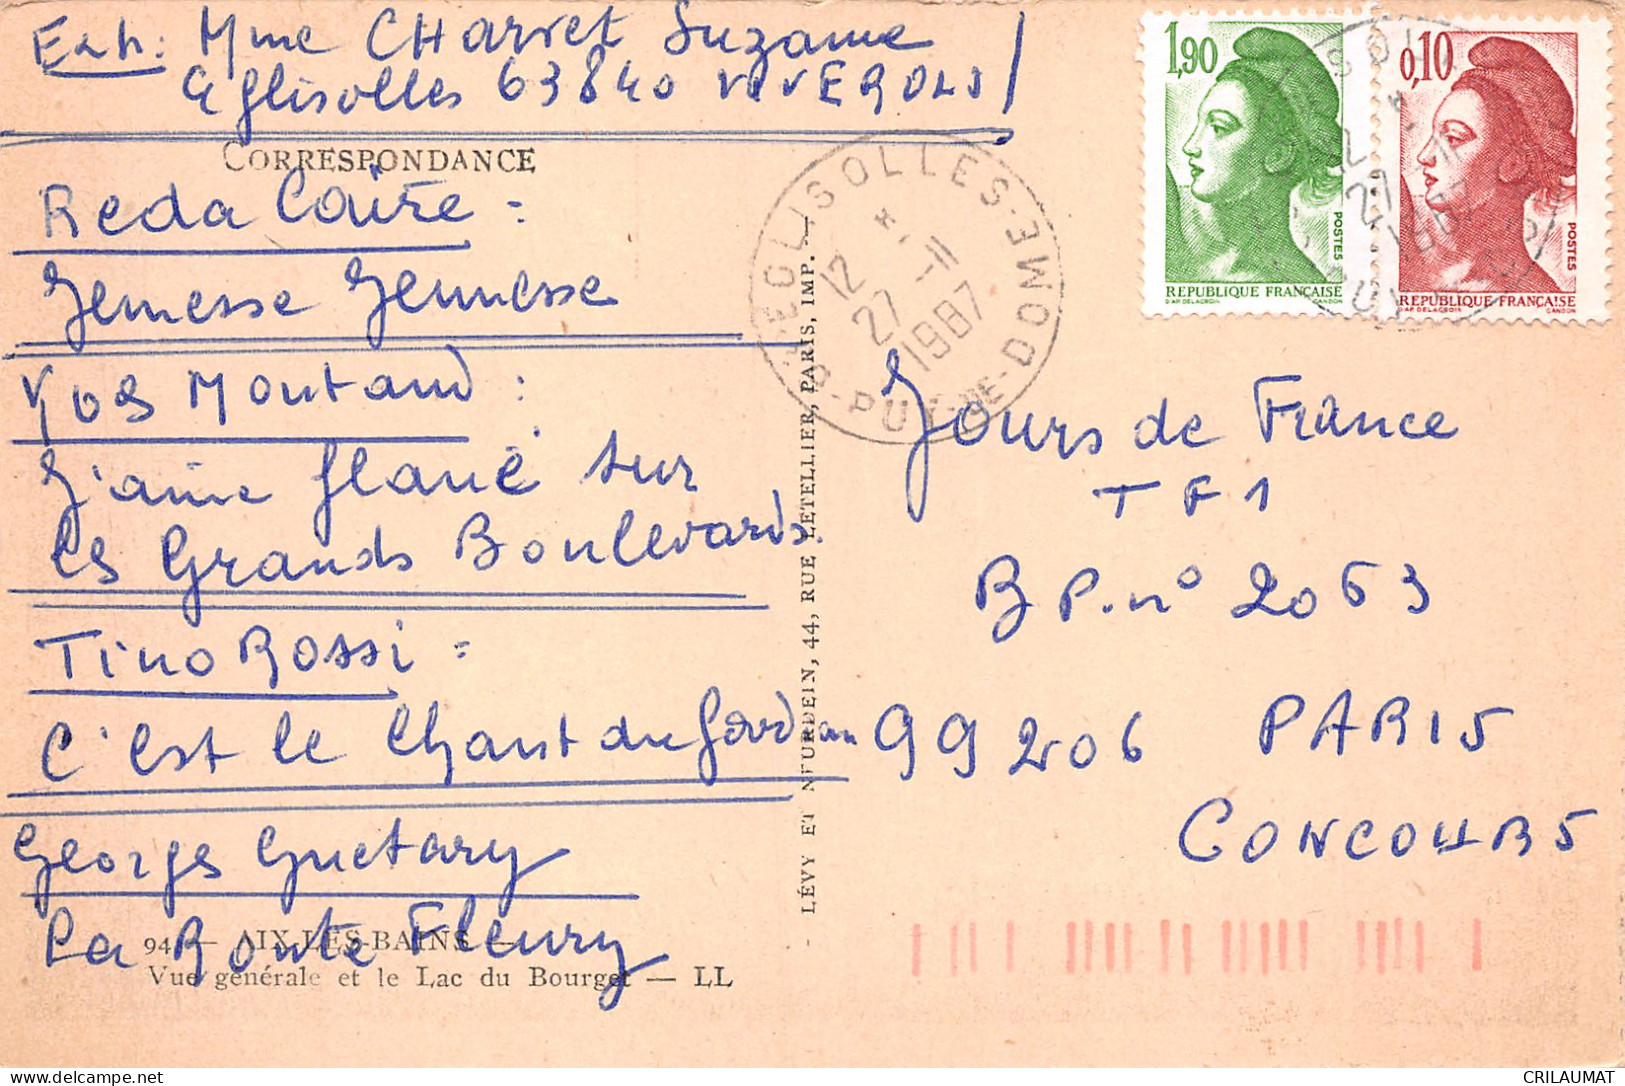 Exh: Mme CHarret Suzanne
Eglisolles 63840 VIVEROLS
CORRESPONDANCE
Reda Caire :
Jennesse Jeunesse
Yves Montand :
J'aime flané sur
les Grands Boulevards.
Tino Rossi =
C'est le Chant du Gardian
Georges Guetary
La Route Fleury
94. — AIX-LES-BAINS —
Vue générale et le Lac du Bourget — LL
LÉVY ET NEURDEIN, 44, RUE LETELLIER, PARIS, IMP. —
EGLISOLLES
PUY-DE-DOME
12
27 -11
1987
1,90
POSTES
REPUBLIQUE FRANÇAISE
D'AP DELACROIX GANDON
0,10
POSTES
REPUBLIQUE FRANÇAISE
D'AP DELACROIX GANDON
Jours de France
TF1
BP. n° 2053
99206 PARIS
CONCOURS
CRILAUMAT